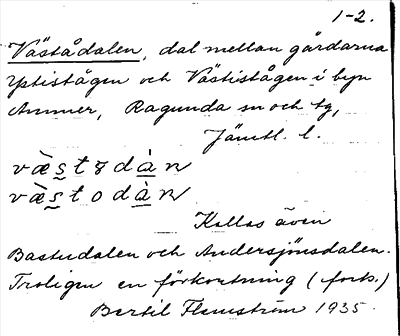 1-2.
Västådalen, dal mellan gårdarna
Ystistågen och Västistågen i byn
Ammer, Ragunda sn och tg,
Jämtl. l.
væ̀st8dàn
væ̀stodàn
Kallas även
Bastudalen och Andersjönsdalen.
Troligen en förkortning (forts.)
Bertil Flemström 1935.